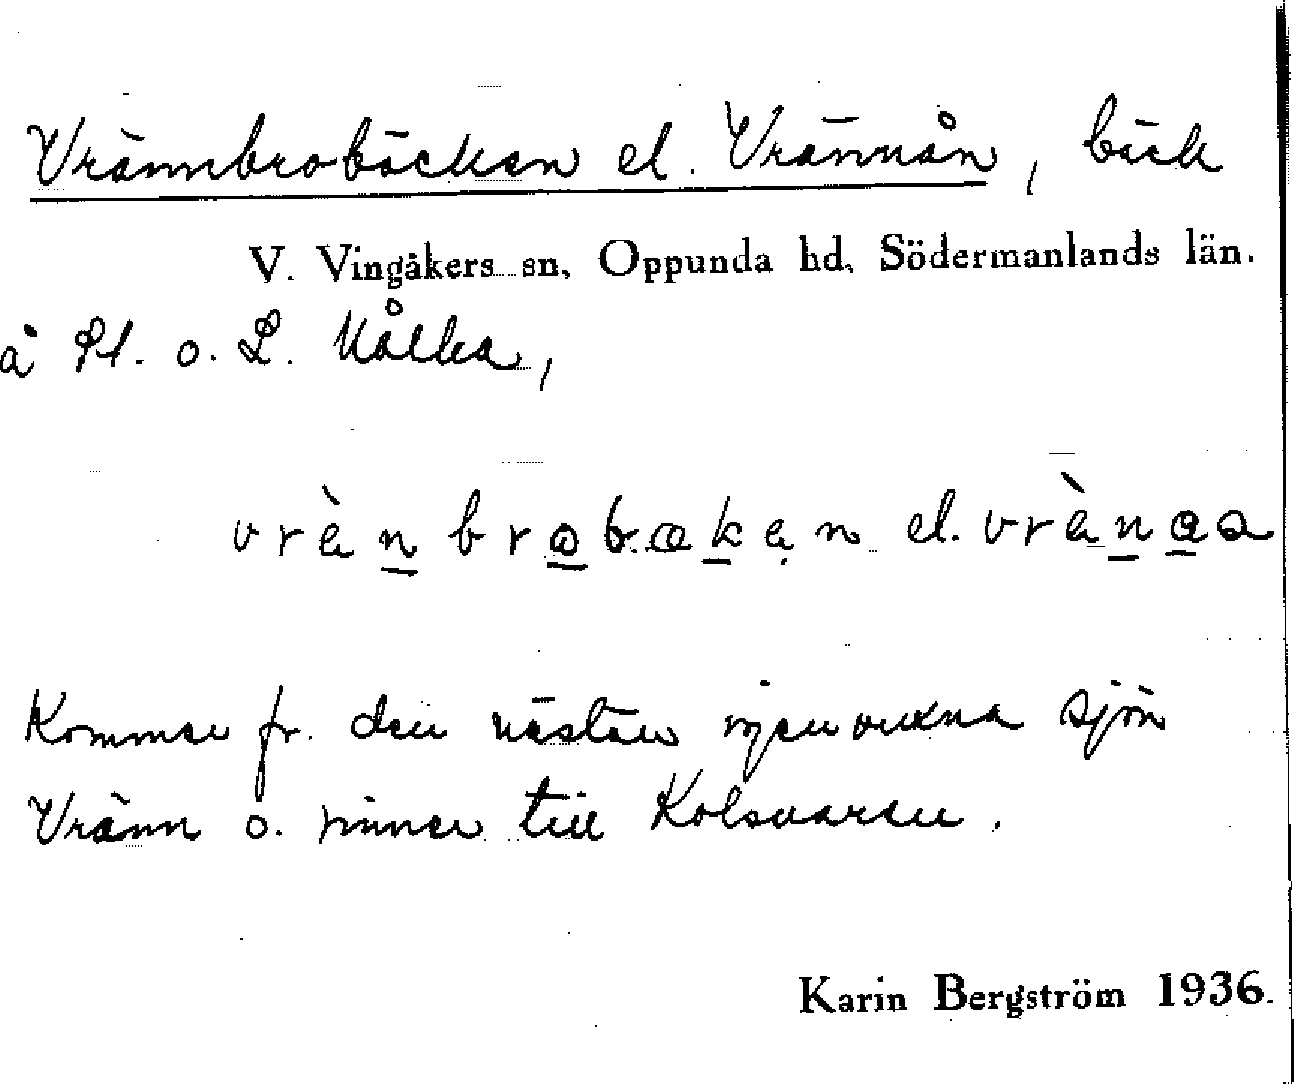 Vrännbrobäcken el. Vrännån, bäck
V. Vingåkers sn, Oppunda hd, Södermanlands län.
å St. o. L. Kålba,
vrànbrobækən el. vrànaa
Kommer fr. den nästan igenvuxna sjön
Vränn o. rinner till Kolsnaren.
Karin Bergström 1936.